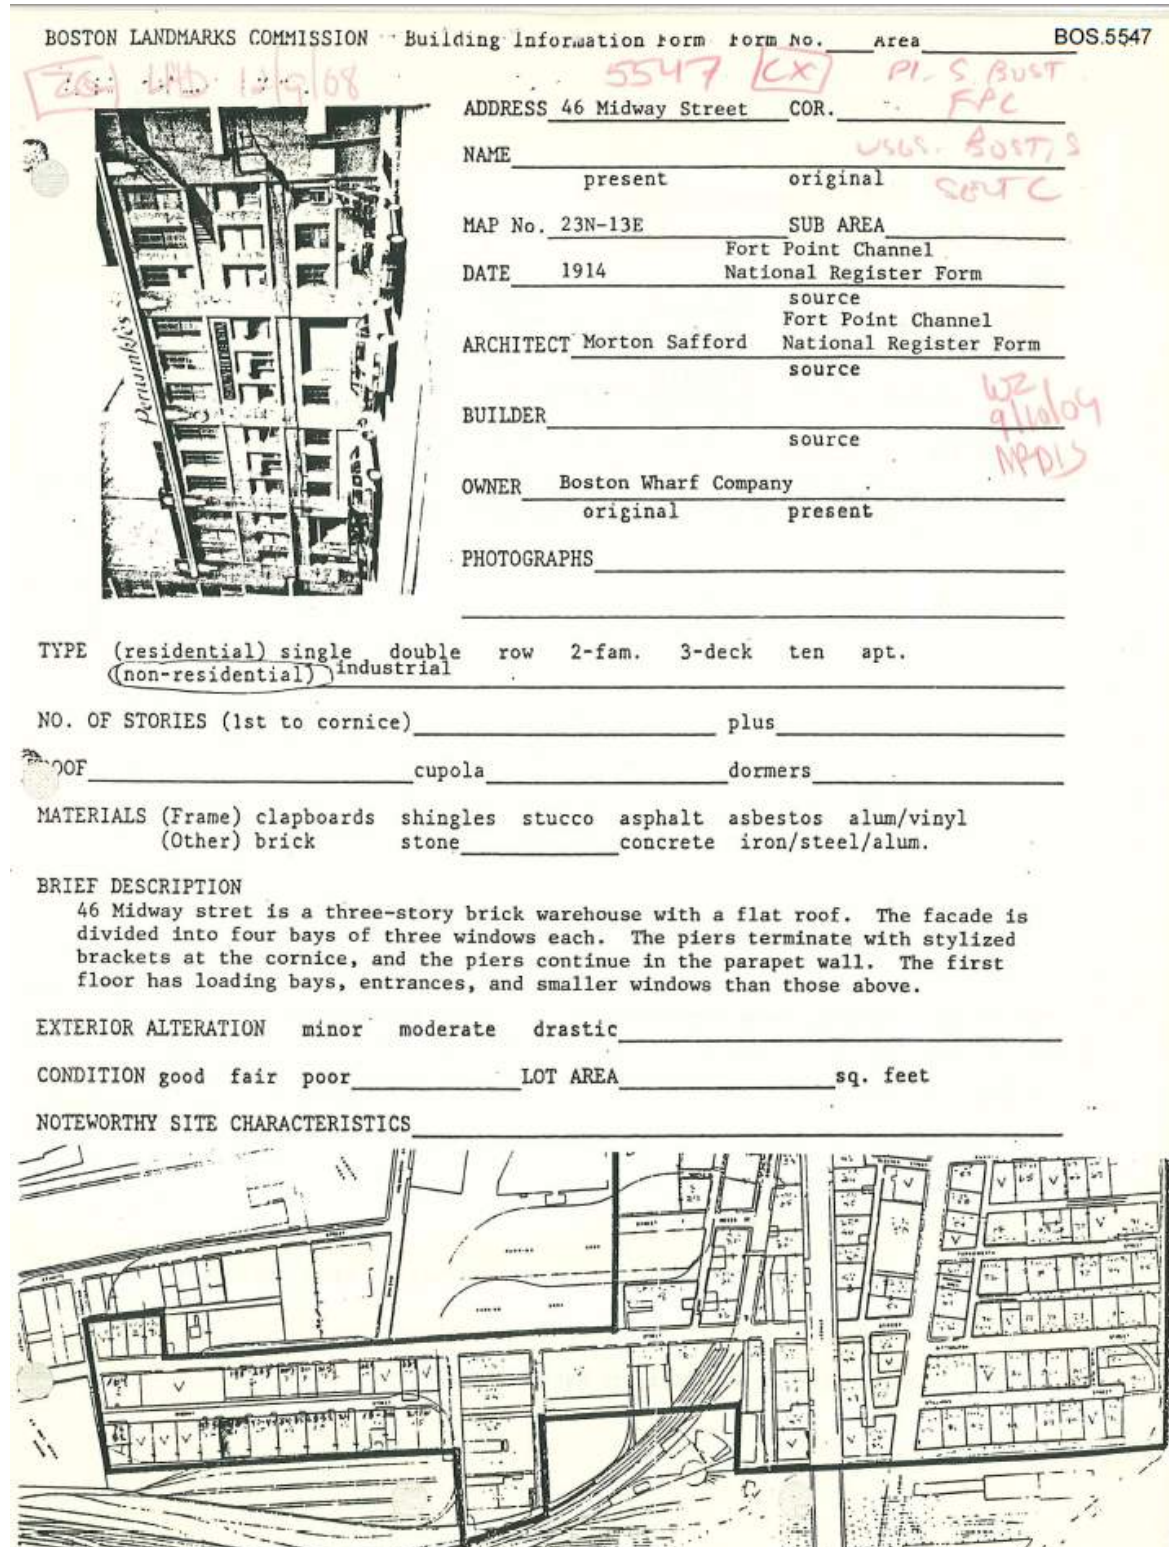 BOSTON LANDMARKS COMMISSION Building Information Form Form No. Area BOS.5547
5547 CX PI. S. BOST
12/9/08 FPC
ADDRESS 46 Midway Street COR.
USGS. BOST, S
NAME
present original
MAP No. 23N-13E SUB AREA
Fort Point Channel
DATE 1914 National Register Form
source
Fort Point Channel
ARCHITECT Morton Safford National Register Form
source
WZ
9/10/04
NRDIS
BUILDER
source
OWNER Boston Wharf Company
original present
PHOTOGRAPHS
TYPE (residential) single double row 2-fam. 3-deck ten apt.
(non-residential) industrial
NO. OF STORIES (1st to cornice) plus
OOF cupola dormers
MATERIALS (Frame) clapboards shingles stucco asphalt asbestos alum/vinyl
(Other) brick stone concrete iron/steel/alum.
BRIEF DESCRIPTION
46 Midway stret is a three-story brick warehouse with a flat roof. The facade is
divided into four bays of three windows each. The piers terminate with stylized
brackets at the cornice, and the piers continue in the parapet wall. The first
floor has loading bays, entrances, and smaller windows than those above.
EXTERIOR ALTERATION minor moderate drastic
CONDITION good fair poor LOT AREA sq. feet
NOTEWORTHY SITE CHARACTERISTICS